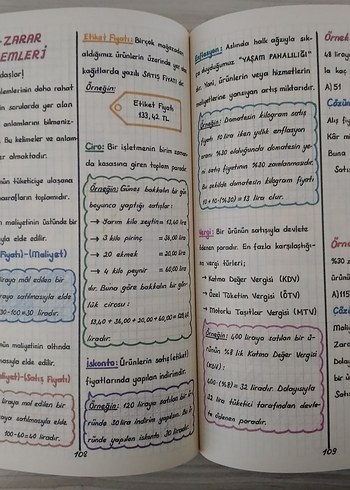 -ZARAR
EMLERİ
daşlar!
emlerinin daha rahat
in sorularda yer alan
anlamlarını bilmeniz-
Bu kelimeler ve anlam-
er almaktadır.
ünün tüketiciye ulaşana
maliyetinin üstünde bir
yla elde edilir.
Fiyatı)-(Maliyet)
liraya mâl edilen bir
raya satılmasıyla elde
30-100=30 liradır.
maliyetinin altında
masıyla elde edilir.
liyet)-(Satış Fiyatı)
raya mal edilen bir
raya satılmasıyla elde
100-60=40 liradır.
Etiket Fiyatı: Birçok mağazadan
aldığımız ürünlerin üzerinde yer alan
kağıtlarda yazılı SATIŞ FİYATI dır.
Örneğin:
Etiket Fiyatı
133,42 TL
Ciro: Bir işletmenin birim zaman-
da kasasına giren toplam paradır.
Örneğin: Güneş bakkalın bir gün
boyunca yaptığı satışlar:
→ Yarım kilo zeytin = 13,40 lira
→ 3 kilo pirinç = 36,00 lira
→ 20 ekmek = 30,00 lira
→ 4 kilo peynir = 60,00 lira
dır. Buna göre bakkalın bir gün-
lük cirosu:
liradır.
İskonto: Ürünlerin satış (etiket)
fiyatlarında yapılan indirimdir.
Örneğin: 120 liraya satılan bir ü-
ründe 30 lira indirim yapılırsa bu ü-
ründe yapılan iskonto 30 liradır.
108
Enflasyon: Aslında halk ağzıyla sık-
ça duyduğumuz "YAŞAM PAHALILIĞI"
dır. Yani, ürünlerin veya hizmetlerin
maliyetlerine yansıyan artış miktarıdır.
Örneğin: Domatesin kilogram satış
fiyatı 10 lira iken yıllık enflasyon
oranı %30 olduğunda domatesin ye-
ni satış fiyatının %30 zamlanmasıdır.
Bu şekilde domatesin kilogram fiyatı
10+10·(%30) = 13 lira olur.
Vergi: Bir ürünün satışıyla devlete
ödenen paradır. En fazla karşılaştığı-
mız vergi türleri;
→ Katma Değer Vergisi (KDV)
→ Özel Tüketim Vergisi (ÖTV)
→ Motorlu Taşıtlar Vergisi (MTV)
Örneğin: 400 liraya satılan bir ü-
rünün %8 lik Katma Değer Vergisi
(KDV):
400·(%8) = 32 liradır. Dolayısıyla
32 lira tüketici tarafından devle-
te ödenen paradır.
109
Örnek
48 liraya
A) 51
Çözüm
Alış fiy
Kâr mi
Buna
Satı
Örne
%15
A) 115
Çözü
Maliy
Dola
bir ü
Satı